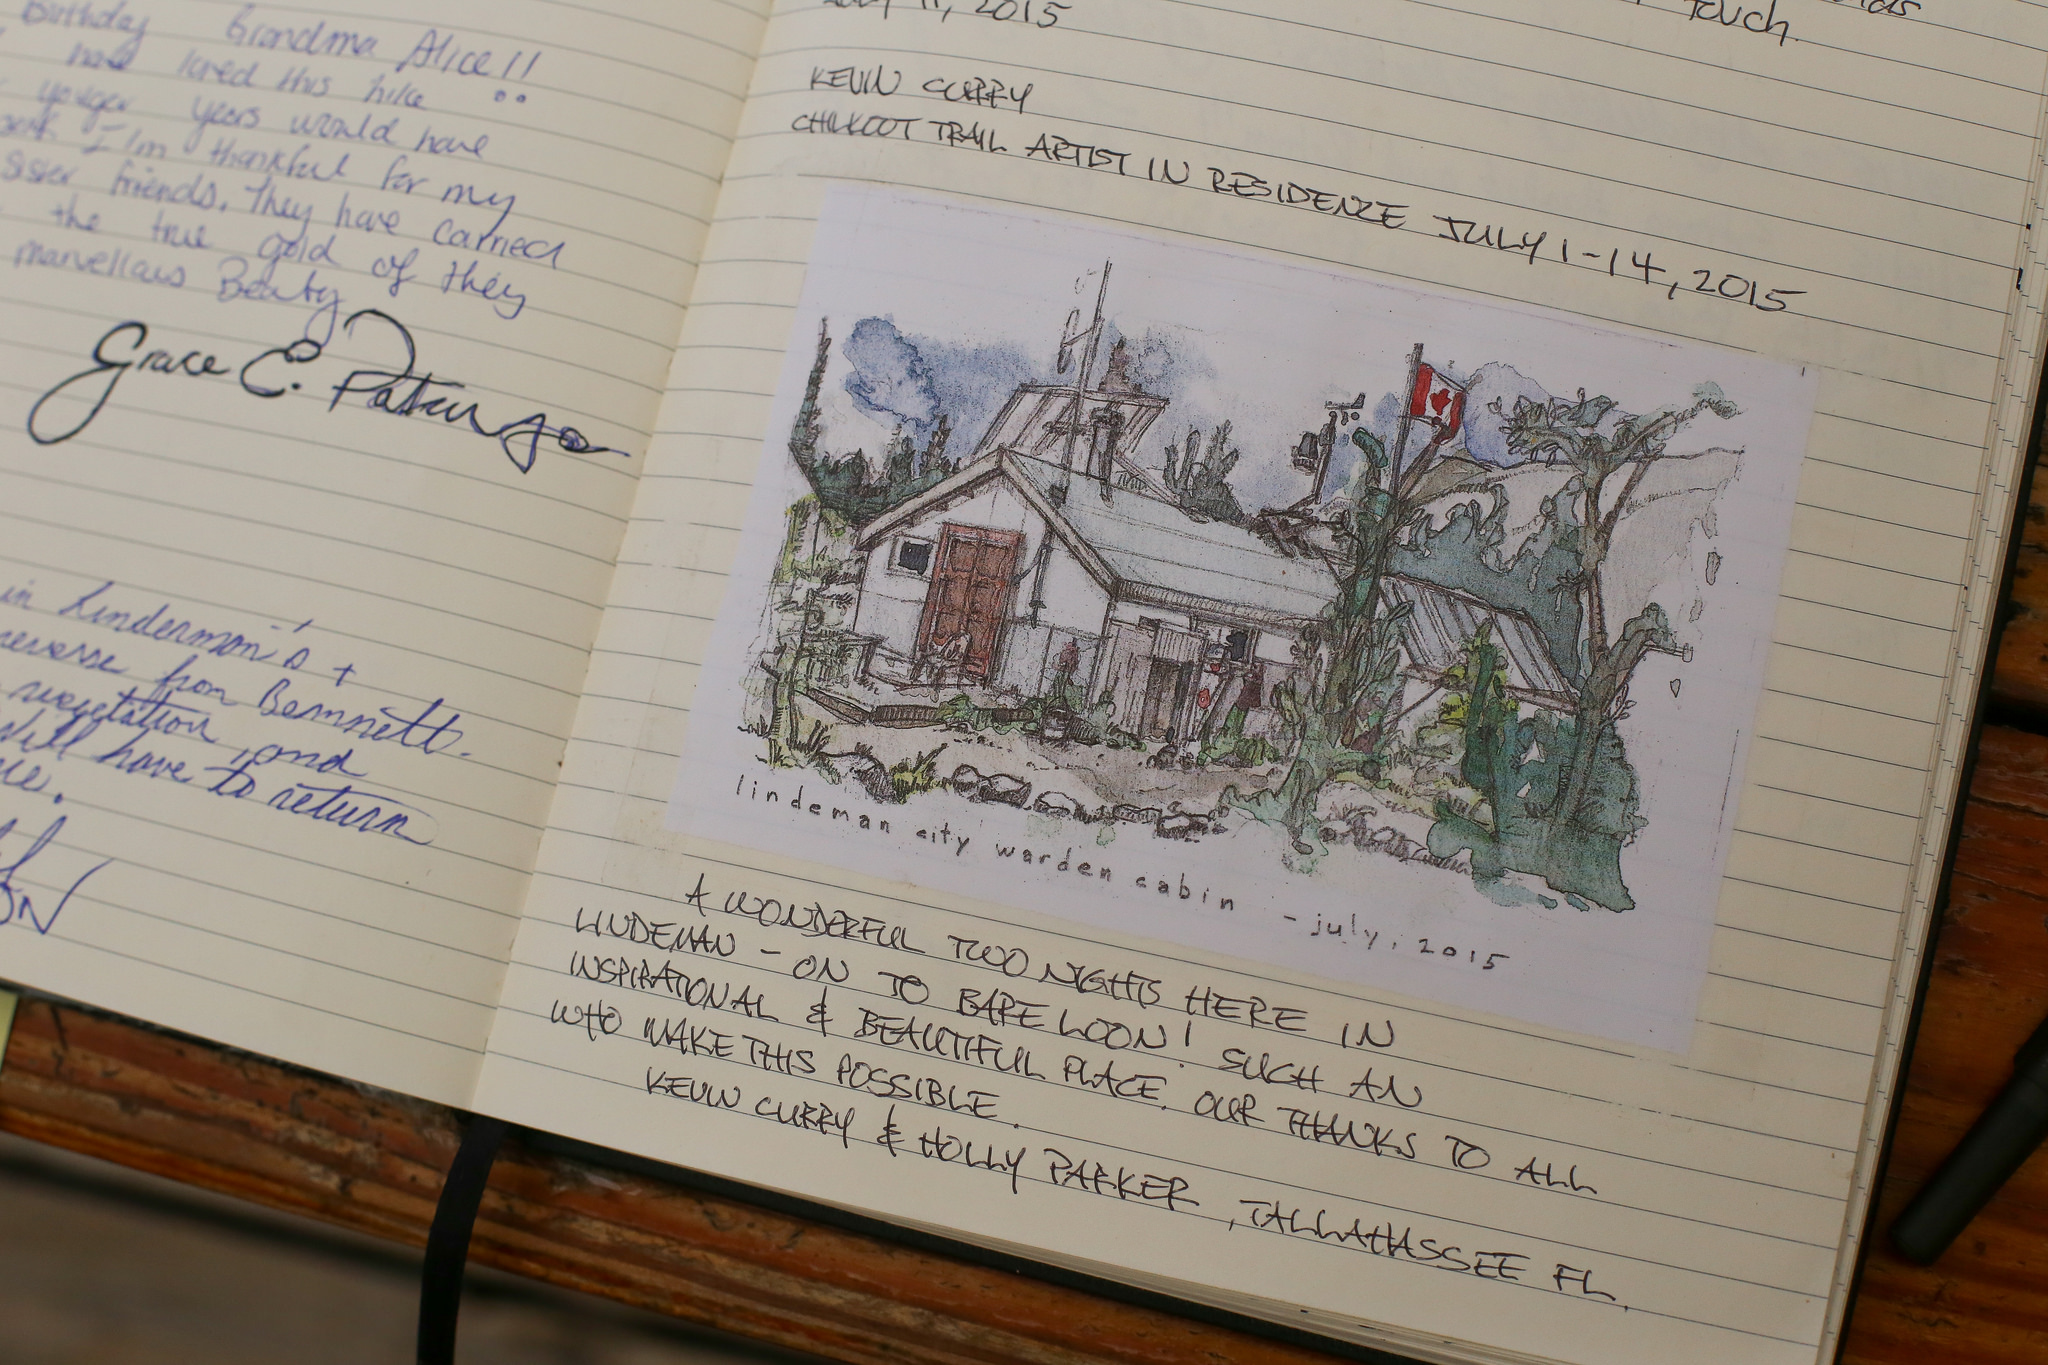 Birthday Grandma Alice!!
have loved this hike
yonger years would have
I I'm thankful for my
sister friends. They have carried
the true gold of they
marvellaus Beauty
Grace E.
in Linderman's +
reverse from Bennett.
vegetation, and
Will have to return
July 11, 2015
touch.
KEVIN CURRY
CHILKOOT TRAIL ARTIST IN RESIDENCE JULY 1-14, 2015
lindeman city warden cabin - july, 2015
A WONDERFUL TWO NIGHTS HERE IN
LINDEMAN - ON TO BARE LOON! SUCH AN
INSPIRATIONAL & BEAUTIFUL PLACE. OUR THANKS TO ALL
WHO MAKE THIS POSSIBLE.
KEVIN CURRY & HOLLY PARKER, TALLAHASSEE FL.